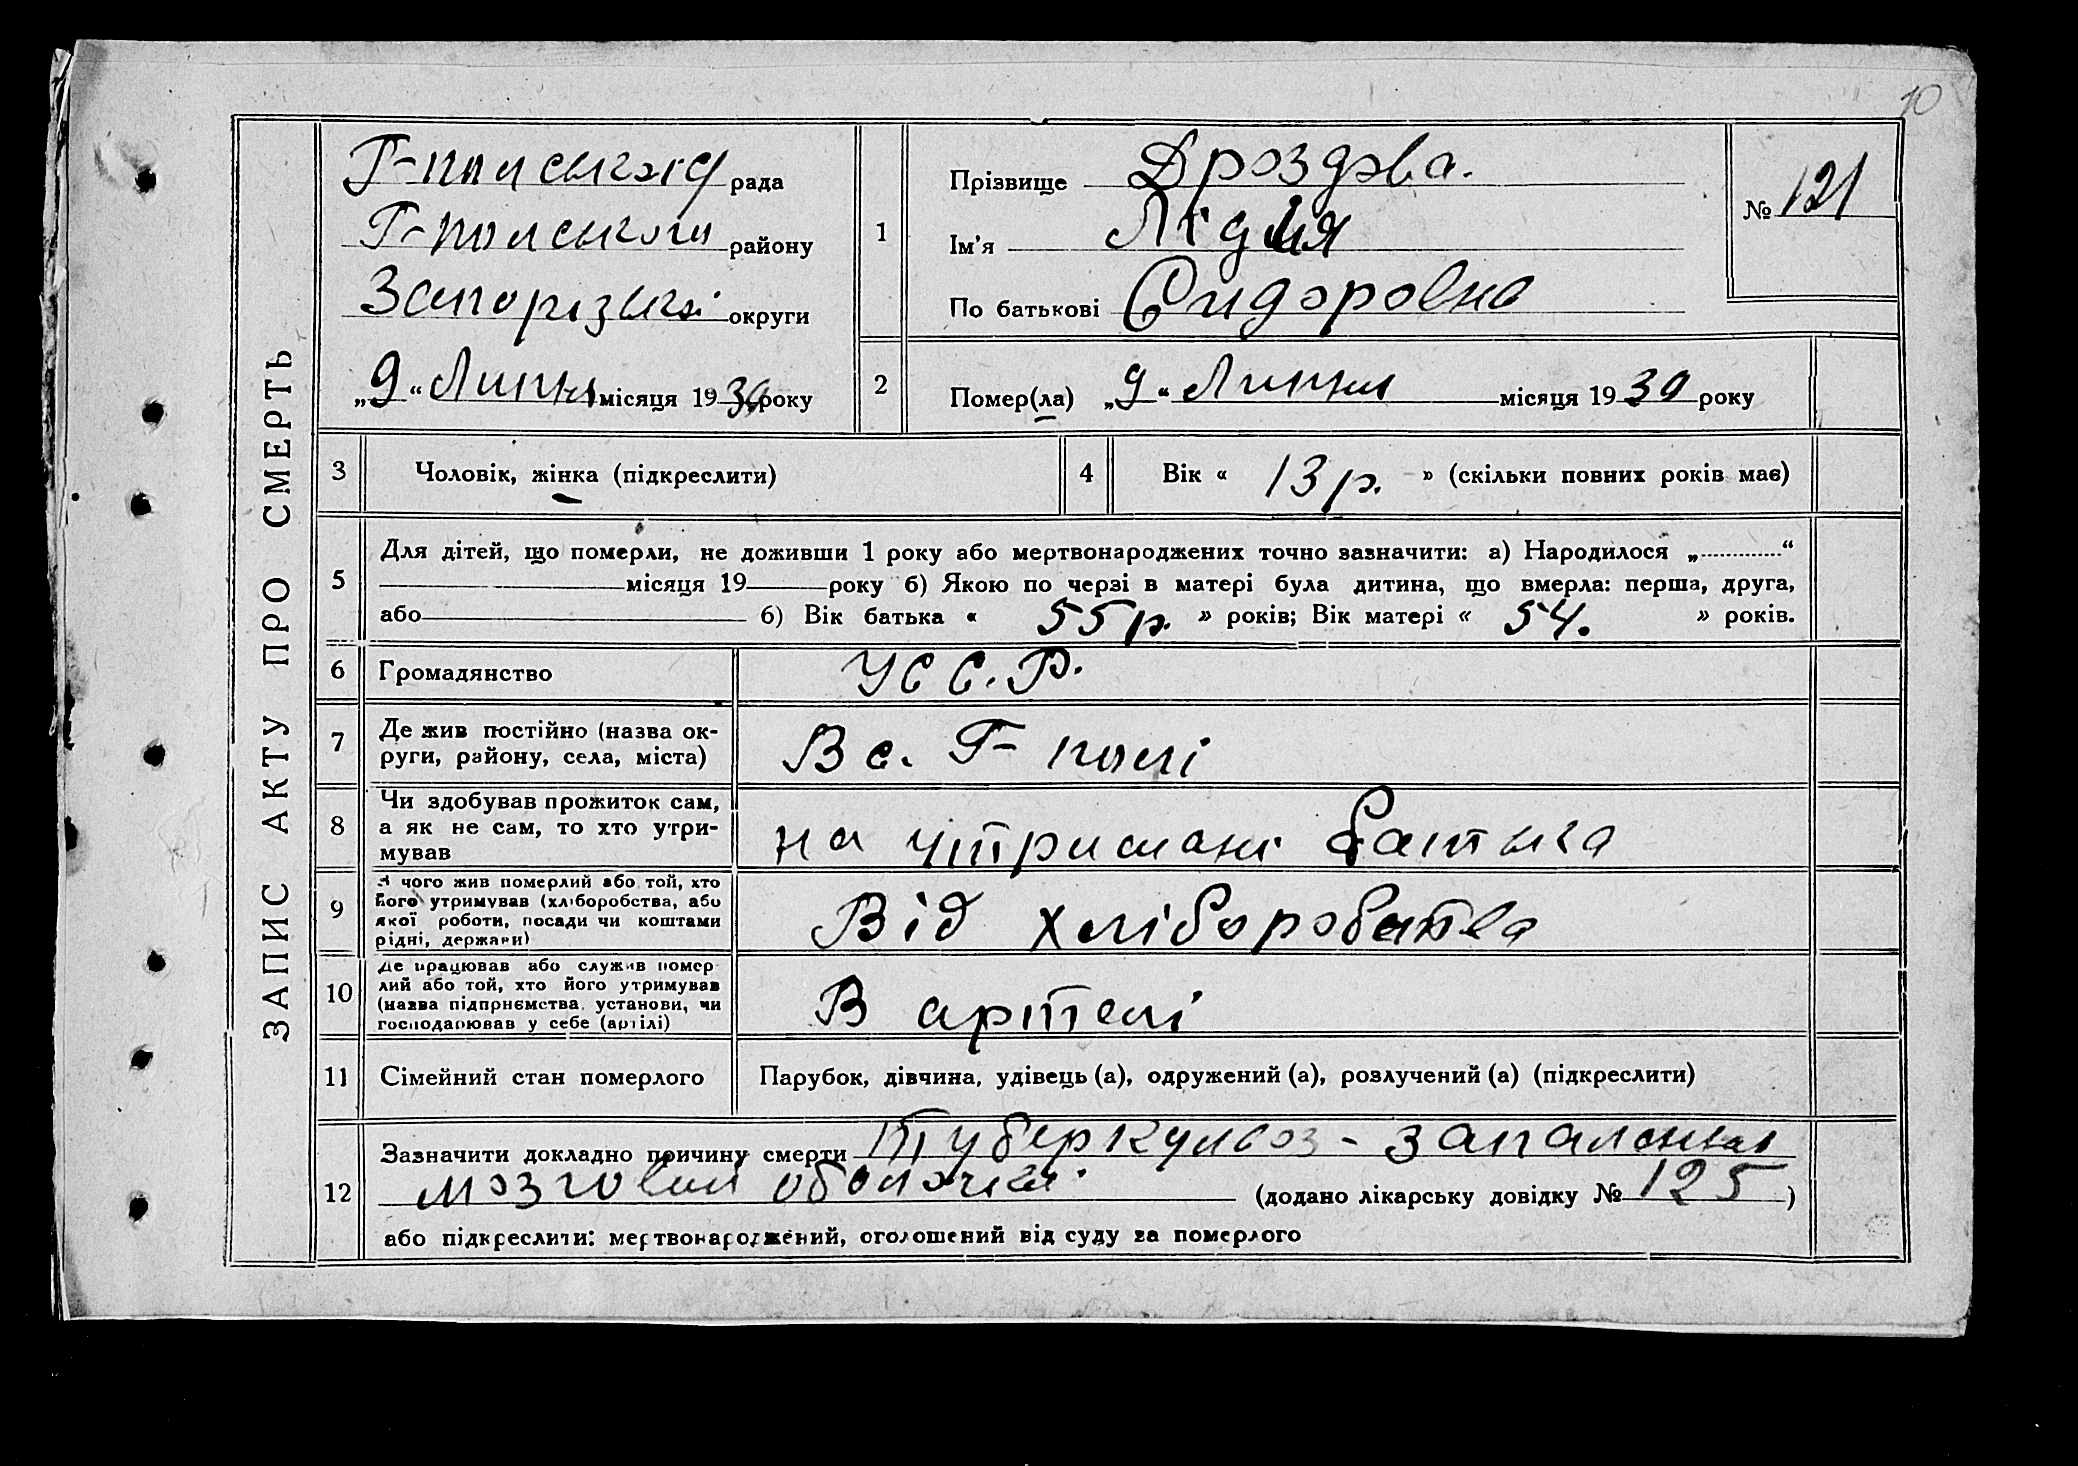 10
ЗАПИС АКТУ ПРО СМЕРТЬ
Г-польської рада
Г-польського району
Запорізької округи
„9“ Липня місяця 1930 року
1
Прізвище Дроздова.
Ім'я Лідия
По батькові Сидоровна
№ 121
2
Помер(ла) „9“ Липня місяця 1930 року
3 Чоловік, жінка (підкреслити)
4 Вік « 13 р. » (скільки повних років має)
5
Для дітей, що померли, не доживши 1 року або мертвонароджених точно зазначити: а) Народилося „.............“
місяця 19 року б) Якою по черзі в матері була дитина, що вмерла: перша, друга,
або б) Вік батька « 55 р. » років; Вік матері « 54. » років.
6 Громадянство УСС.Р.
7
Де жив постійно (назва ок-
руги, району, села, міста)
В с. Г-полі
8
Чи здобував прожиток сам,
а як не сам, то хто утри-
мував
на утримані батька
9
З чого жив померлий або той, хто
його утримував (хліборобства, або
якої роботи, посади чи коштами
рідні, держави)
Від хліборобства
10
Де працював або служив помер
лий або той, хто його утримував
(назва підприємства, установи, чи
господарював у себе (артілі)
В артелі
11 Сімейний стан померлого Парубок, дівчина, удівець (а), одружений (а), розлучений (а) (підкреслити)
12
Зазначити докладно причину смерти Туберкульоз - запалення
мозговой оболочки. (додано лікарську довідку № 125 )
або підкреслити: мертвонароджений, оголошений від суду за померлого